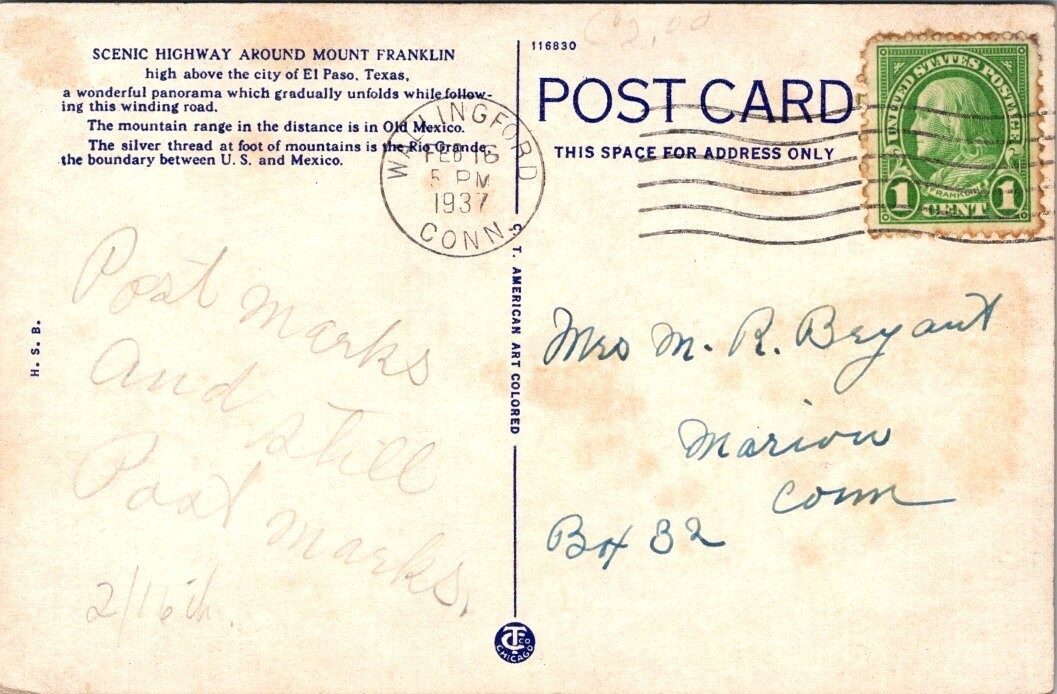 C2.00
116830
SCENIC HIGHWAY AROUND MOUNT FRANKLIN
high above the city of El Paso, Texas,
a wonderful panorama which gradually unfolds while follow-
ing this winding road.
The mountain range in the distance is in Old Mexico.
The silver thread at foot of mountains is the Rio Grande,
the boundary between U. S. and Mexico.
POST CARD
THIS SPACE FOR ADDRESS ONLY
UNITED STATES POSTAGE
FRANKLIN
1 CENT 1
WALLINGFORD
FEB 16
5 PM
1937
CONN.
Post marks
And still
Post marks.
2/16th.
H. S. B.
C. T. AMERICAN ART COLORED
Mrs M. R. Bryant
Marion
Conn
Box 32
CT CO
CHICAGO